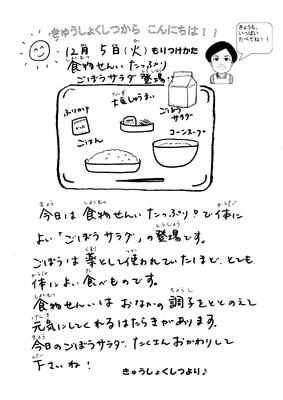 きゅうしょくしつから こんにちは！！
きょうも、
いっぱい
たべてね！！
12月 5日(火) もりつけかた
食物せんい たっぷり
ごぼうサラダ 登場♡
ふりかけ
大豆しゅうまい
ごぼう
サラダ
ごはん
コーンスープ
今日は 食物せんい たっぷり♡で体に
よい「ごぼうサラダ」の登場です。
ごぼうは 薬として使われていたほど、とても
体によい食べものです。
食物せんいは おなかの調子をととのえて
元気にしてくれるはたらきがあります。
今日のごぼうサラダ、たくさんおかわりして
下さいね！
きゅうしょくしつより♪